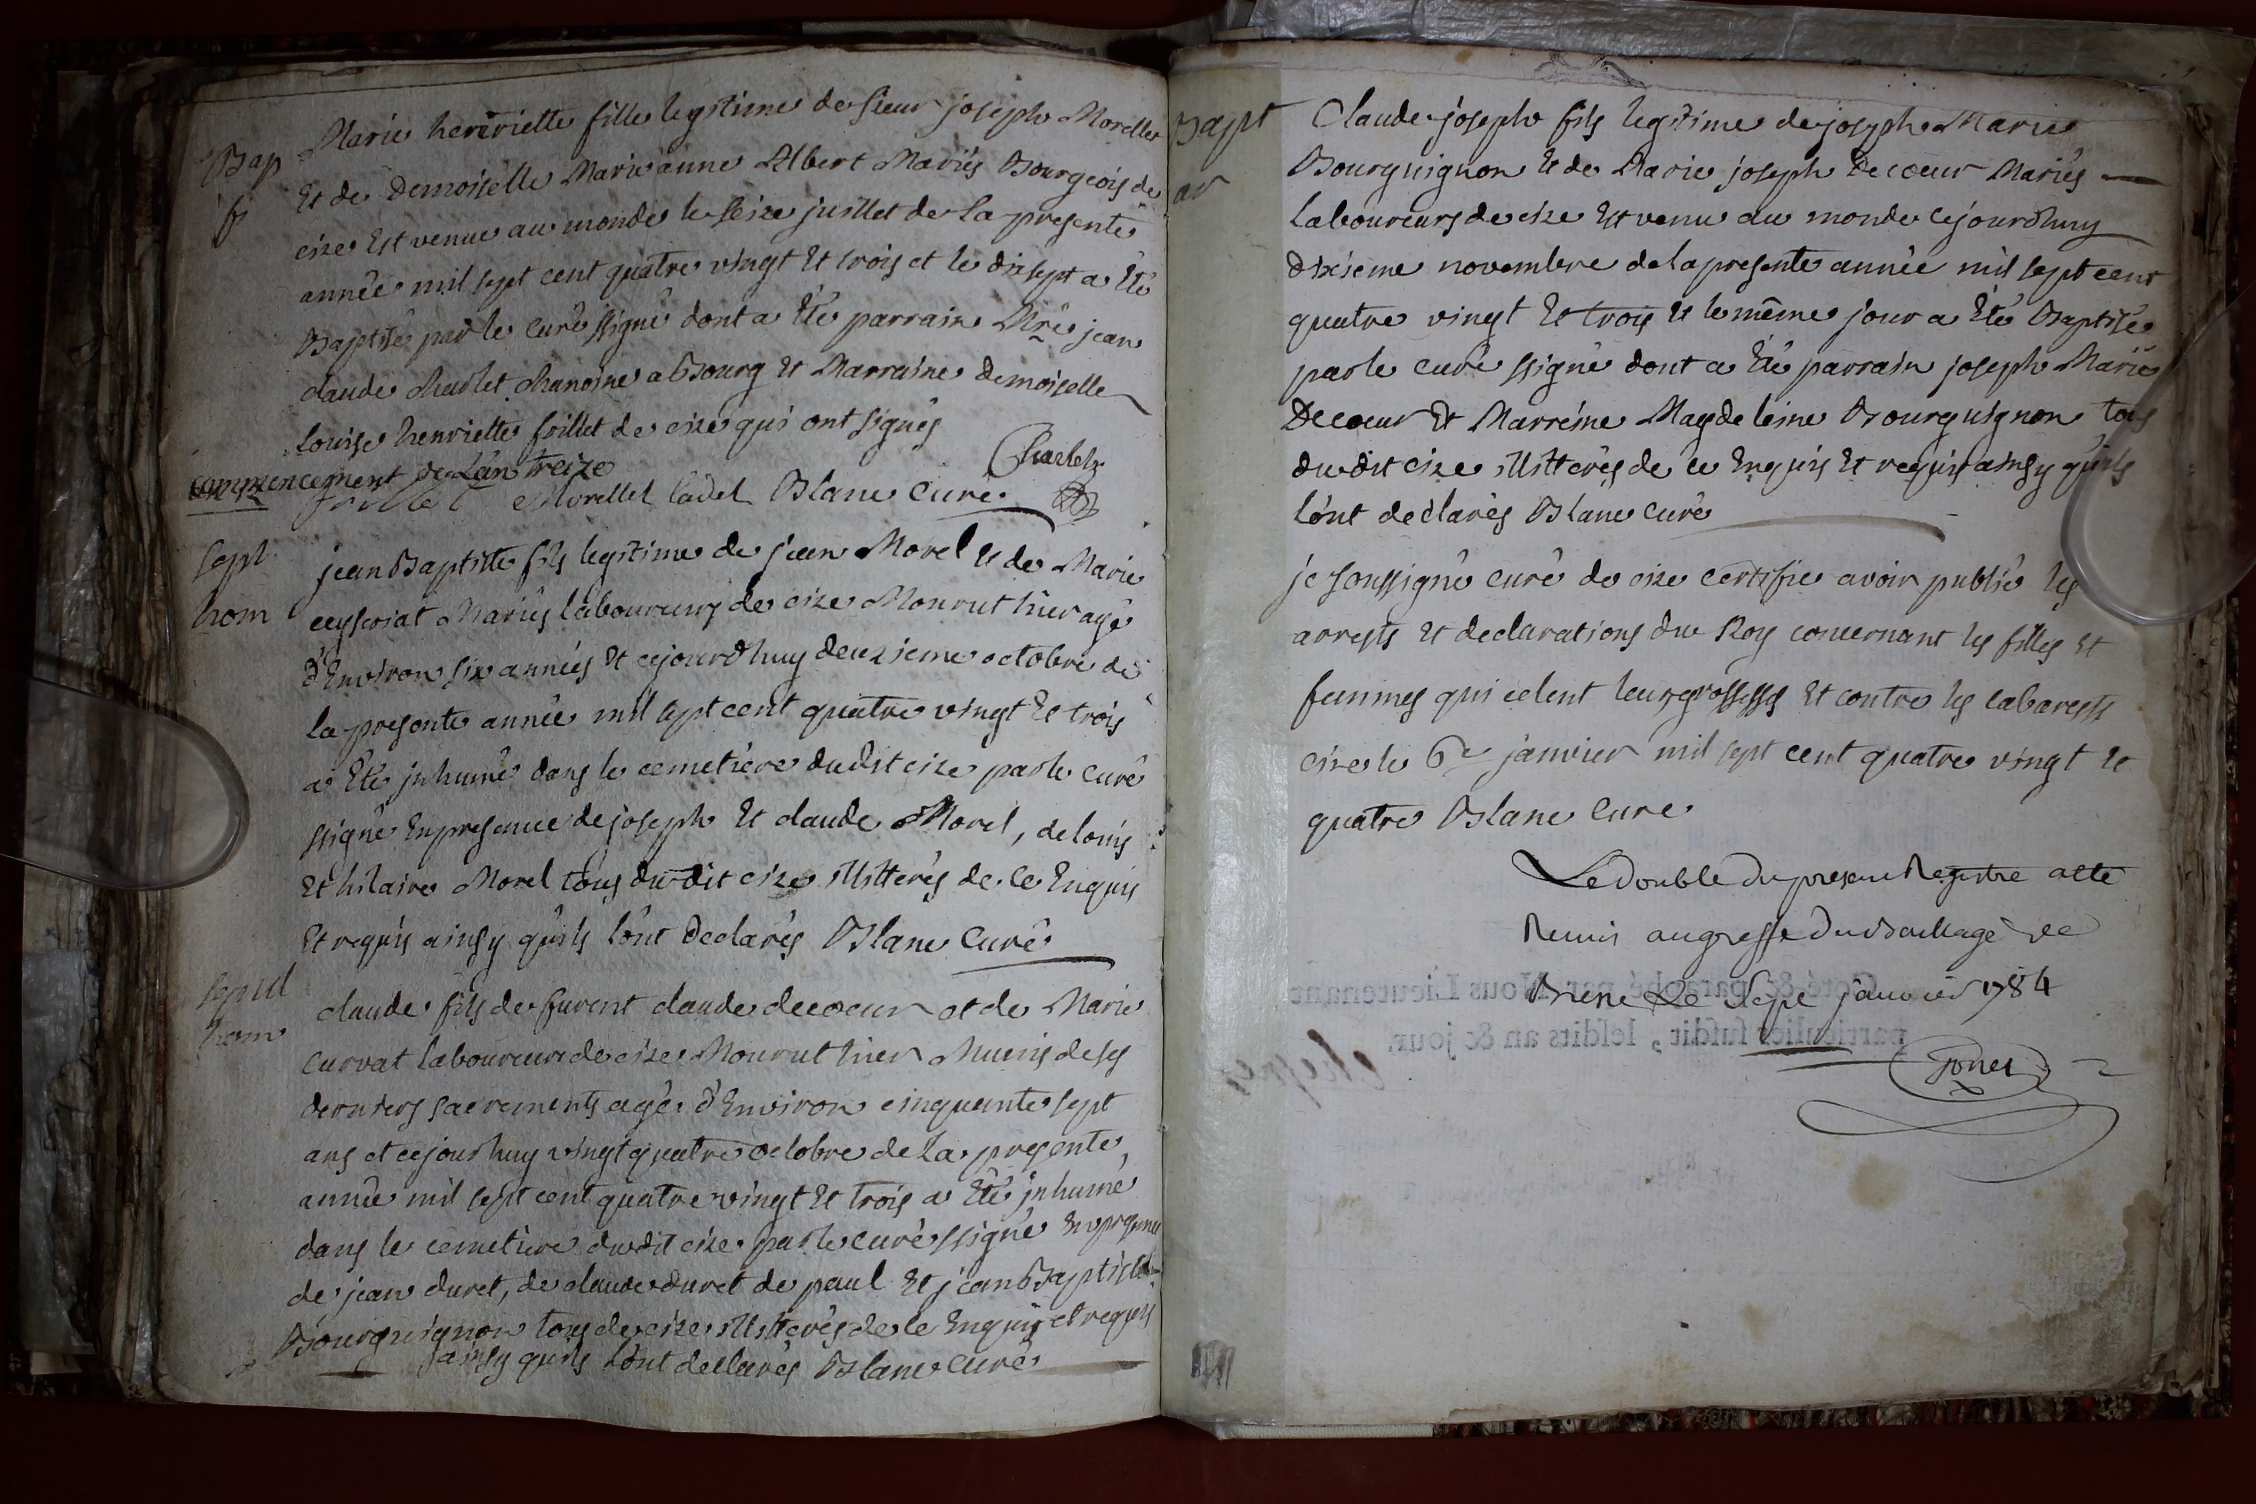 Bap
fi
Marie henriette fille legitime de sieur joseph Morellet
Et de Demoiselle Marie anne Albert Mariés Bourgeois de
cize Est venue au monde le seize juillet de la presente
année mil sept cent quatre vingt Et trois et le dixsept a Eté
Baptisée par le curé ssigné dont a Eté parrain Mre jean
claude Charlet Chanoine a Bourg Et Marraine demoiselle
louise henriette foillet de cize qui ont signés
commencement de L'an treize
foillet Morellet Cadet Blanc Curé Charlet
Sept
hom
jean Baptiste fils legitime de jean Morel Et de Marie
ceyseriat Mariés laboureurs de cize Mourut hier agé
d'Environ six années Et cejourdhuy deuxieme octobre de
la presente année mil sept cent quatre vingt Et trois
a Eté inhumé dans le cemetière dudit cize par le curé
ssigné En presence de joseph Et claude Morel, de louis
Et hilaire Morel tous dudit cize illitterés de ce Enquis
Et requis ainsy qu'ils l'ont déclarés Blanc Curé
sepul
hom
claude fils de furent claude decoeur et de Marie
curvat laboureur de cize Mourut hier Munis de ses
derniers sacrements agé d'Environ cinquante sept
ans et cejourhuy vingt quatre octobre de la presente
année mil sept cent quatre vingt Et trois a Eté inhumé
dans le cemetière dudit cize par le curé ssigné En presence
de jean duret, de claude duret de paul Et jean Baptiste
Bourguignon tous de cize illitterés de ce Enquis et requis
ainsy qu'ils l'ont declarés Blanc Curé
Bapt
Claude joseph fils legitime de joseph Marie
Bourguignon Et de Marie joseph Decoeur Mariés
laboureurs de cize Est venu au monde cejourdhuy
dixieme novembre de la presente année mil sept cent
quatre vingt Et trois Et le même jour a Eté Baptisé
par le curé ssigné dont a Eté parrain joseph Marie
Decoeur Et Marreine Magdeleine Bourguignon tous
dudit cize illitterés de ce Enquis Et requis ainsy qu'ils
l'ont declarés Blanc curé
je soussigné curé de cize certifie avoir publié les
arrests Et declarations du Roy concernant les filles Et
femmes qui celent leurs grossesses Et contre les cabarests
cize le 6e janvier mil sept cent quatre vingt Et
quatre Blanc Curé
Le double du present Registre a eté
Remis au greffe du Bailliage de
Bresse Le Sept janvier 1784
Coté & paraphé par Nous Lieutenant
particulier susdit, lesdits an & jour.